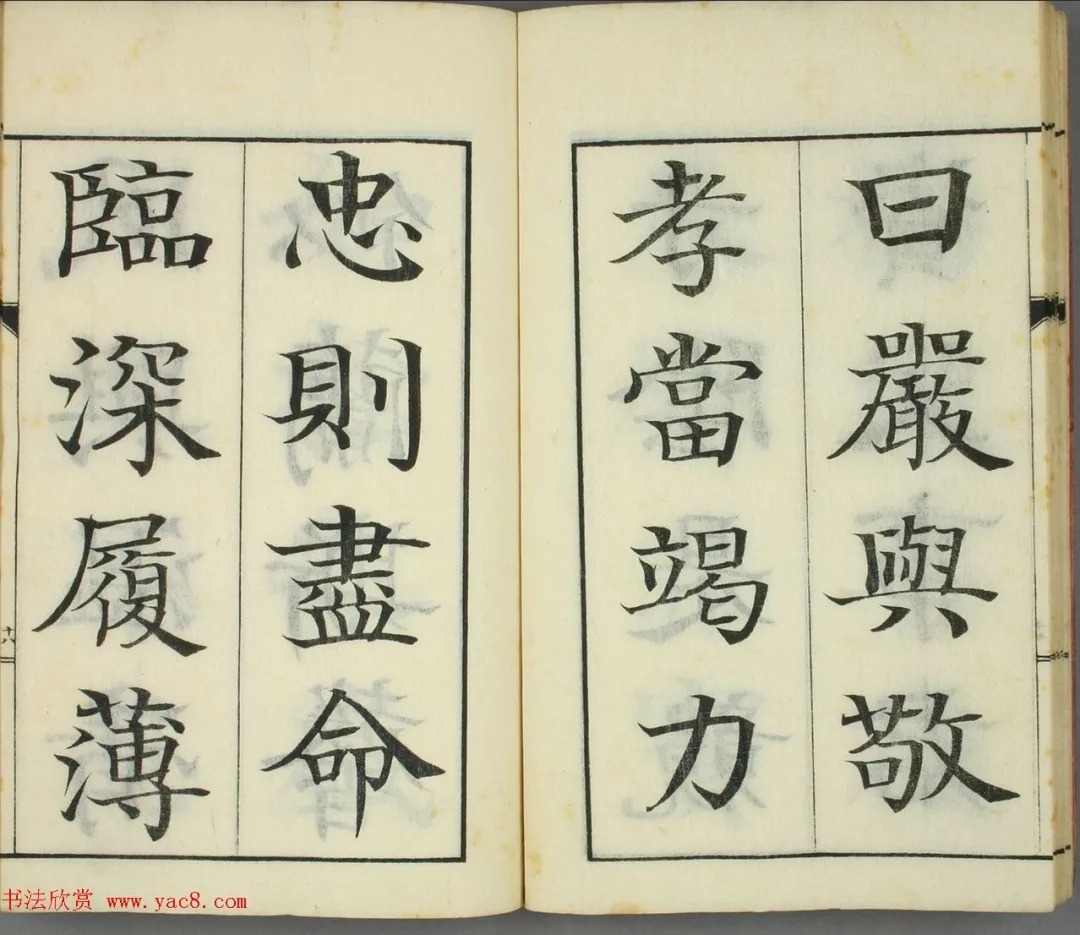 曰嚴與敬
孝當竭力
忠則盡命
臨深履薄
十八
书法欣赏 www.yac8.com